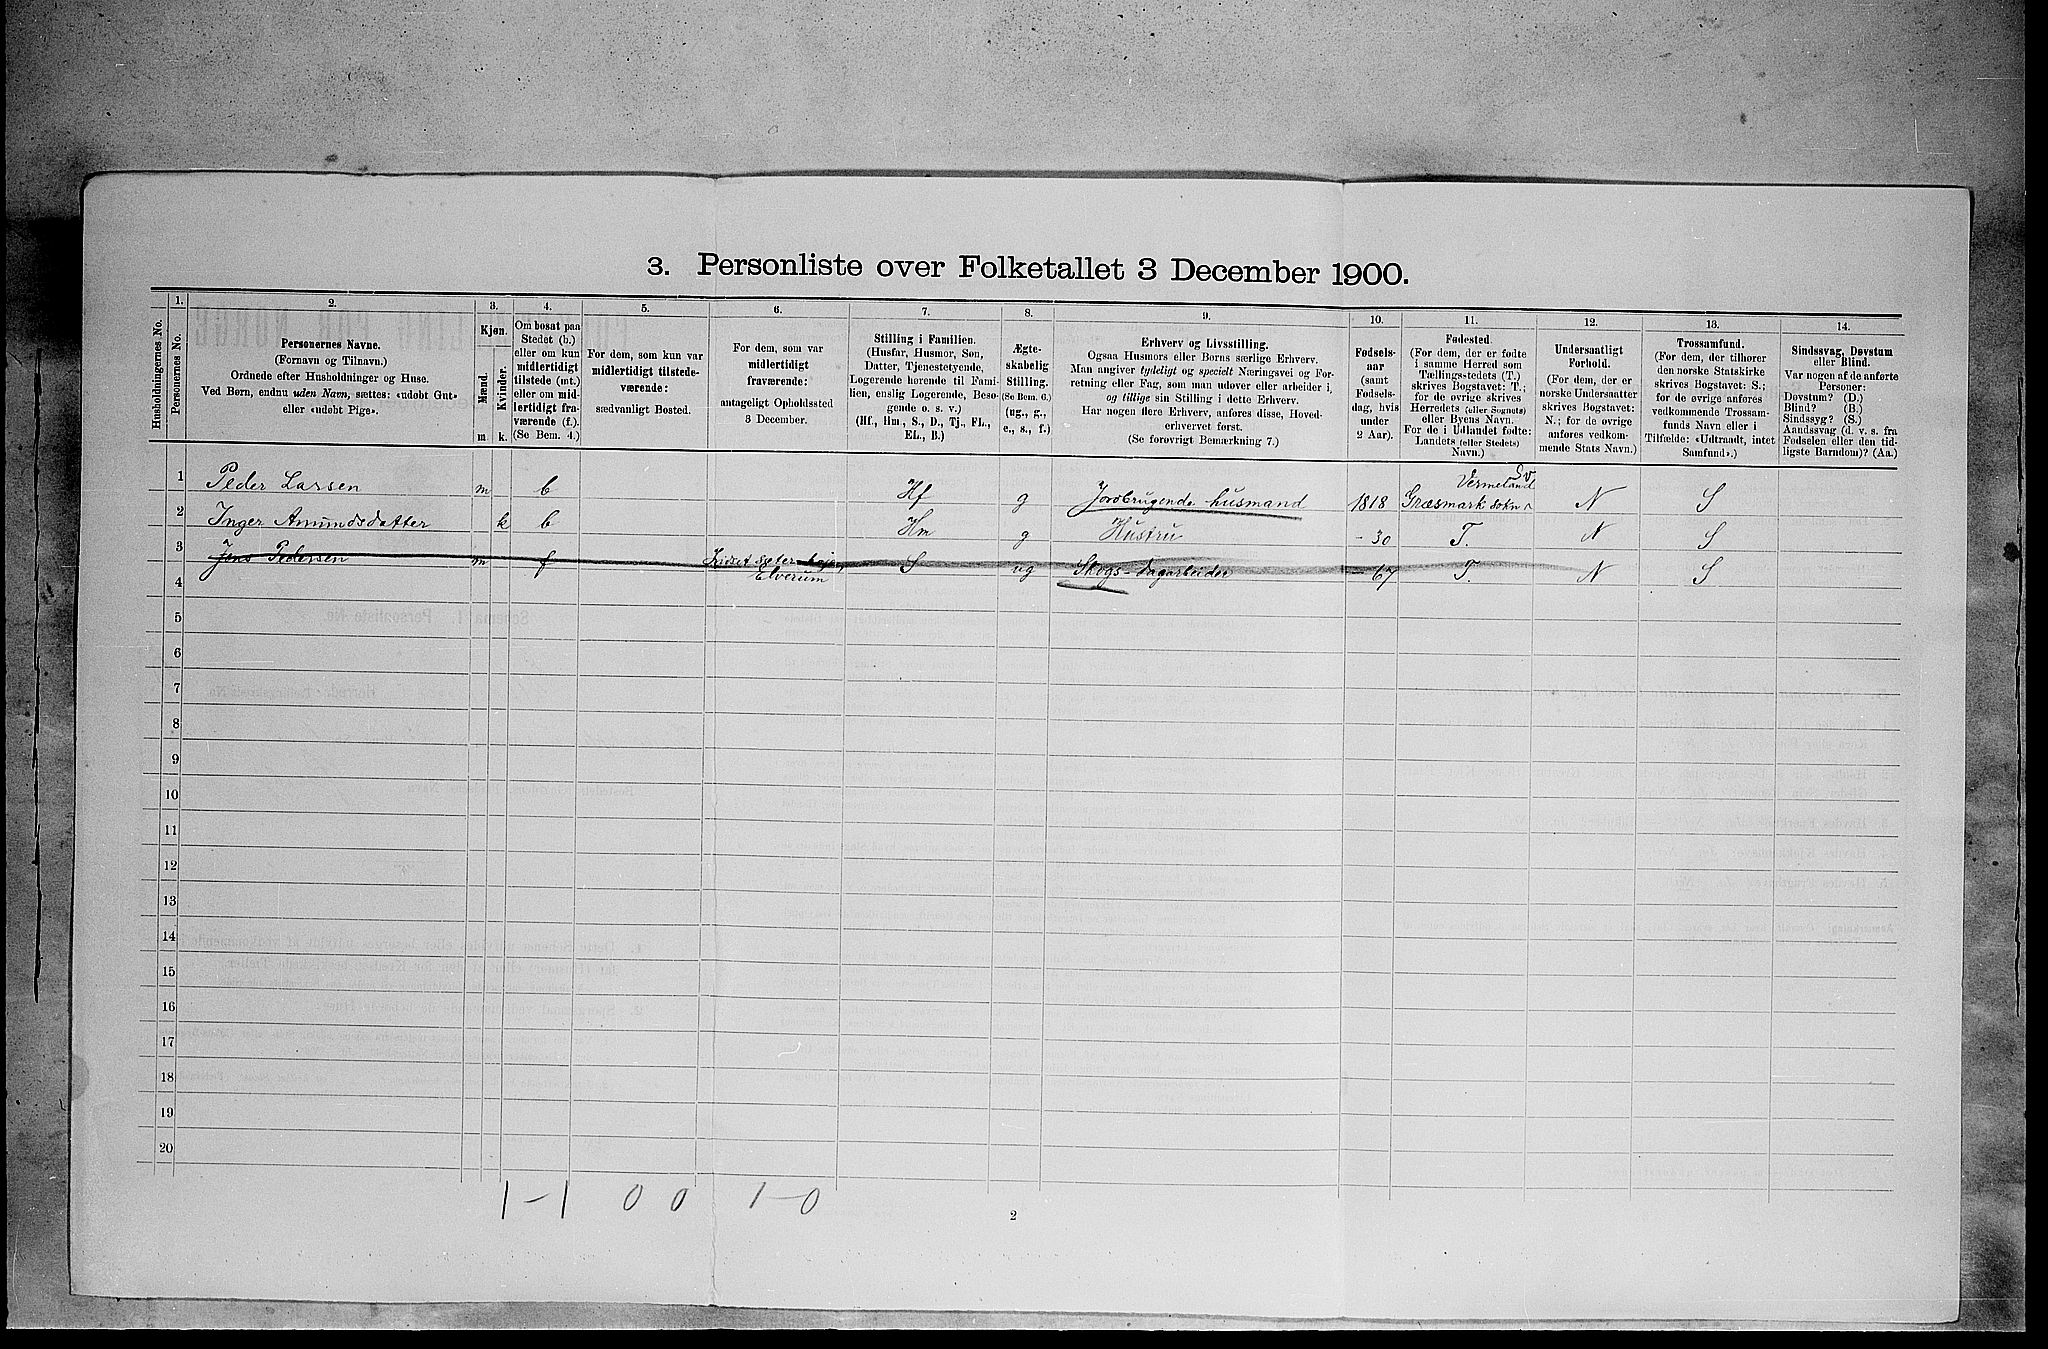 3. Personliste over Folketallet 3 December 1900.
Husholdningernes No.
1.
Personernes No.
2.
Personernes Navne.
(Fornavn og Tilnavn.)
Ordnede efter Husholdninger og Huse.
Ved Børn, endnu uden Navn, sættes: «udøbt Gut»
eller «udøbt Pige».
3.
Kjøn.
Mænd.
Kvinder.
m.
k.
4.
Om bosat paa
Stedet (b.)
eller om kun
midlertidigt
tilstede (mt.)
eller om mid-
lertidigt fra-
værende (f.).
(Se Bem. 4.)
5.
For dem, som kun var
midlertidigt tilstede-
værende:
sædvanligt Bosted.
6.
For dem, som var
midlertidigt
fraværende:
antageligt Opholdssted
3 December.
7.
Stilling i Familien.
(Husfar, Husmor, Søn,
Datter, Tjenestetyende,
Logerende hørende til Fami-
lien, enslig Logerende, Besø-
gende o. s. v.)
(Hf, Hm, S., D., Tj., FL.,
EL., B.)
8.
Ægte-
skabelig
Stilling.
(Se Bem. 6.)
(ug., g.,
e., s., f.)
9.
Erhverv og Livsstilling.
Ogsaa Husmors eller Børns særlige Erhverv.
Man angiver tydeligt og specielt Næringsvei og For-
retning eller Fag, som man udøver eller arbeider i,
og tillige sin Stilling i dette Erhverv.
Har nogen flere Erhverv, anføres disse, Hoved-
erhvervet først.
(Se forøvrigt Bemærkning 7.)
10.
Fødsels-
aar
(samt
Fødsels-
dag, hvis
under
2 Aar).
11.
Fødested.
(For dem, der er fødte
i samme Herred som
Tællingsstedets (T.)
skrives Bogstavet: T.;
for de øvrige skrives
Herredets (eller Sognets)
eller Byens Navn.
For de i Udlandet fødte:
Landets (eller Stedets)
Navn.)
12.
Undersaatligt
Forhold.
(For dem, der er
norske Undersaatter
skrives Bogstavet:
N.; for de øvrige
anføres vedkom-
mende Stats Navn.)
13.
Trossamfund.
(For dem, der tilhører
den norske Statskirke
skrives Bogstavet: S.;
for de øvrige anføres
vedkommende Trossam-
funds Navn eller i
Tilfælde: «Udtraadt, intet
Samfund».)
14.
Sindssvag, Døvstum
eller Blind.
Var nogen af de anførte
Personer:
Døvstum? (D.)
Blind? (B.)
Sindssyg? (S.)
Aandssvag (d. v. s. fra
Fødselen eller den tid-
ligste Barndom)? (Aa.)
1 Peder Larsen m b Hf g Jordbrugende husmand 1818 Græsmark sokn Vermeland Sv N S
2 Inger Amundsdatter k b Hm g Hustru - 30 T. N S
3 Jens Pedersen m f Elverum S ug Skogs-dagarbeider - 67 T. N S
4
5
6
7
8
9
10
11
12
13
14
15
16
17
18
19
20
1-1 0 0 1-0
2